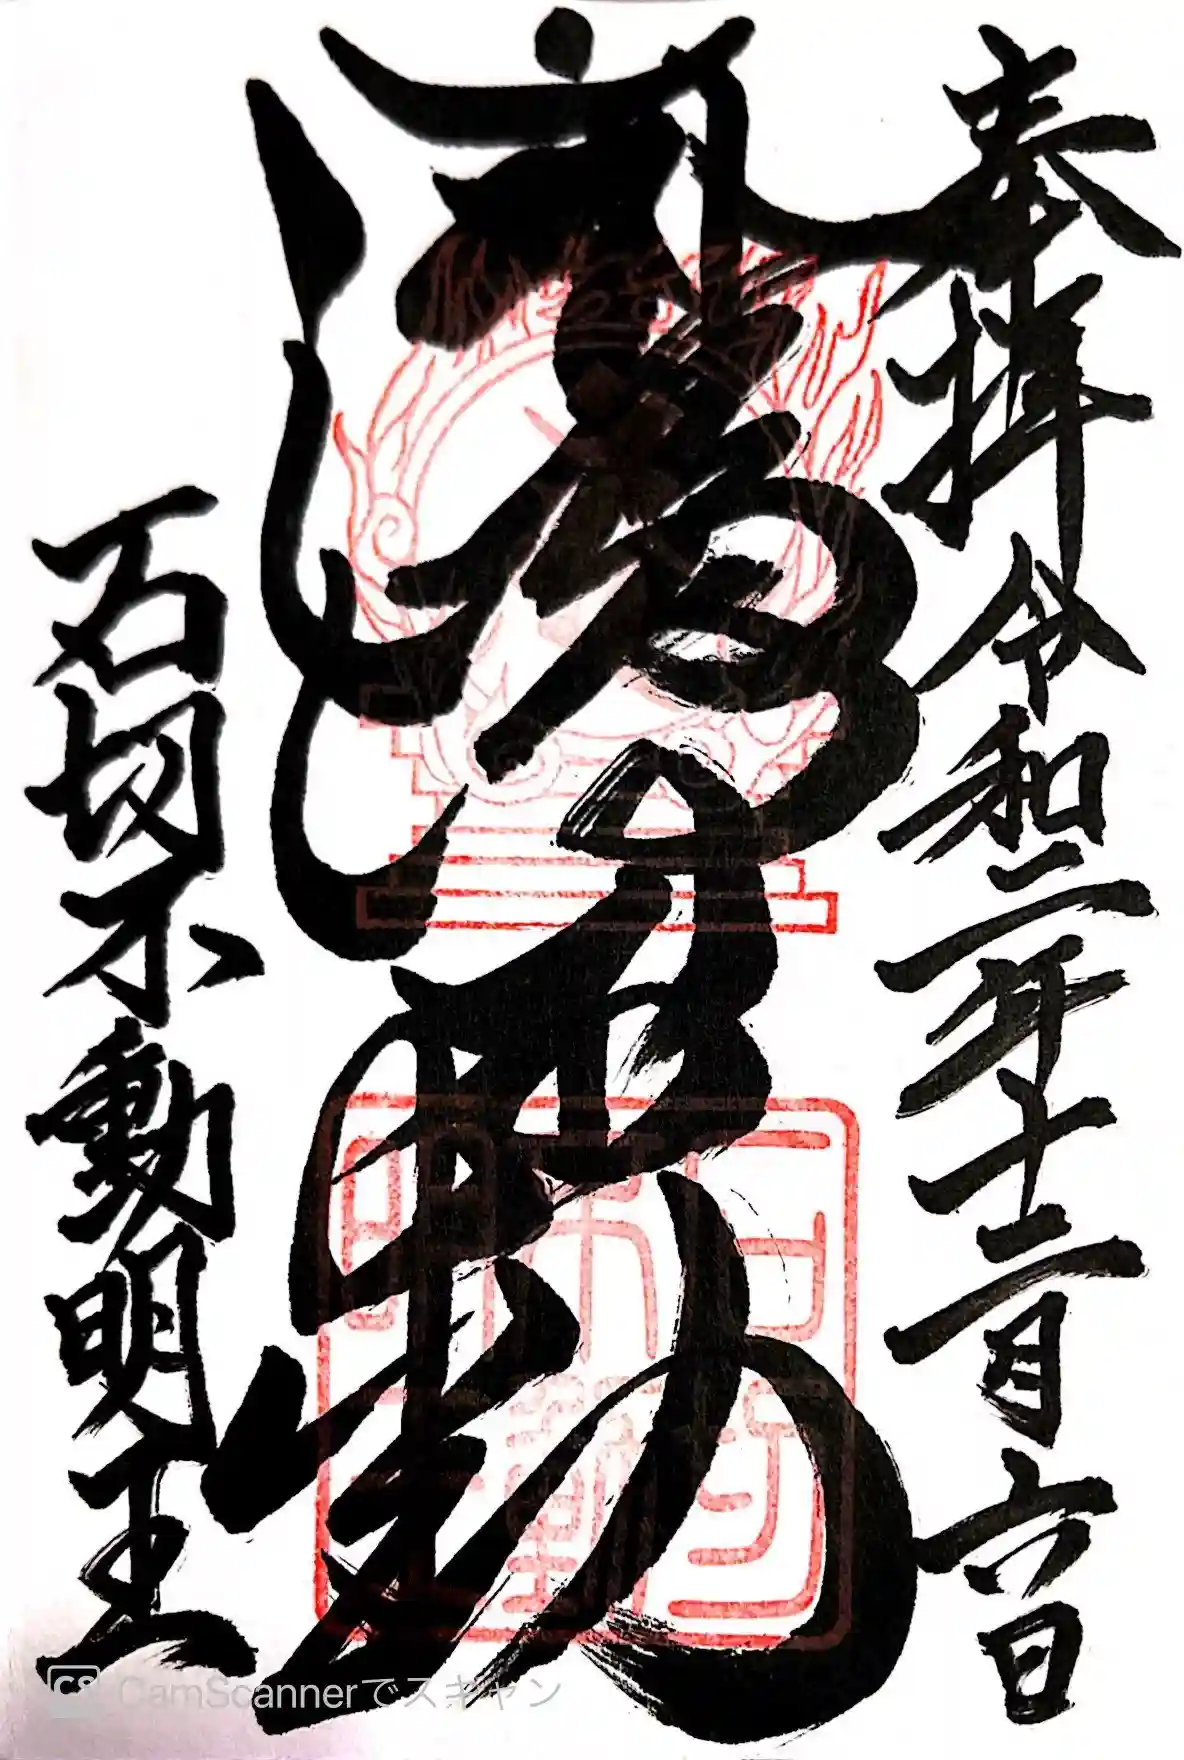 奉拝 令和二年十二月六日
不動
石切不動明王
石切
不動
明王
CS CamScannerでスキャン